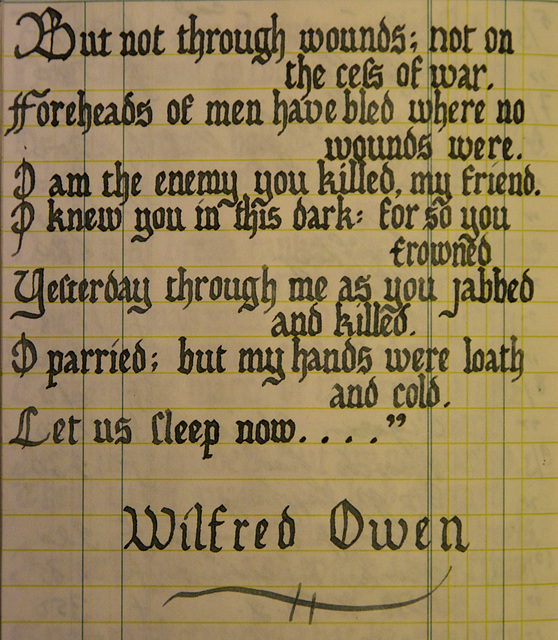 But not through wounds; not on
the cess of war.
Foreheads of men have bled where no
wounds were.
I am the enemy you killed, my friend.
I knew you in this dark: for so you
frowned
Yesterday through me as you jabbed
and killed.
I parried; but my hands were loath
and cold.
Let us sleep now. . . .”
Wilfred Owen